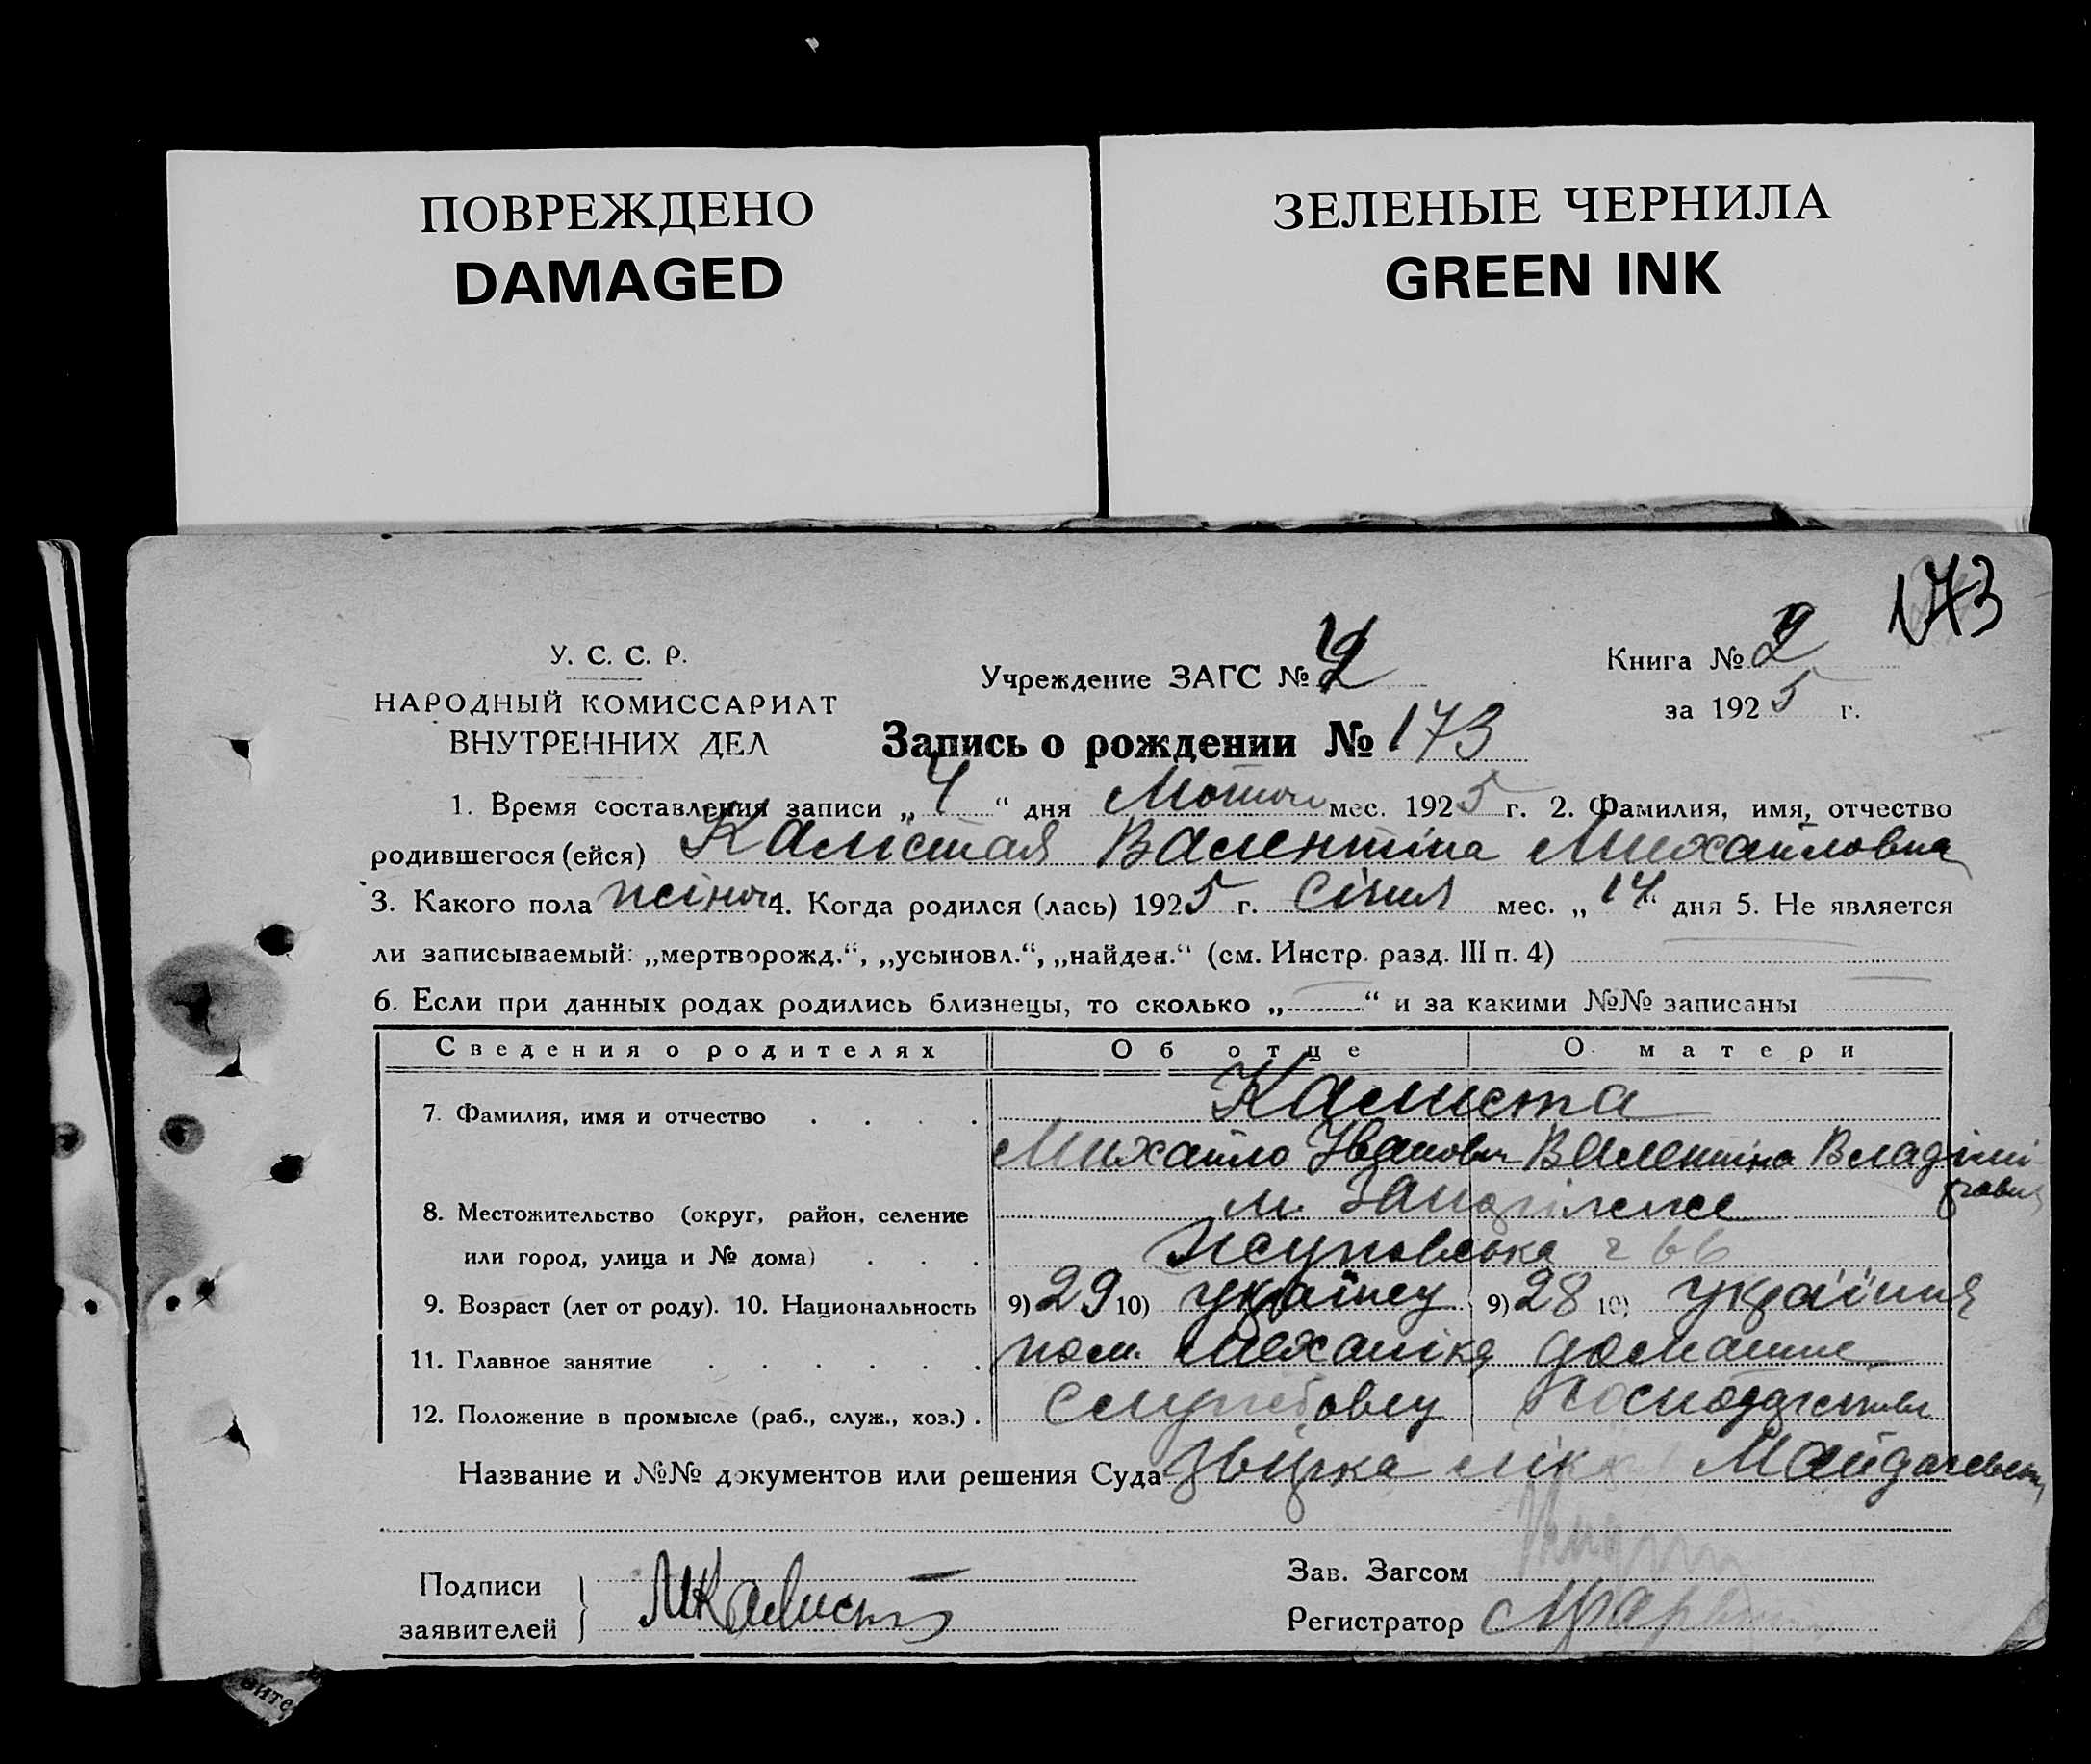 ПОВРЕЖДЕНО
DAMAGED
ЗЕЛЕНЫЕ ЧЕРНИЛА
GREEN INK
173
У. С. С. Р.
НАРОДНЫЙ КОМИССАРИАТ
ВНУТРЕННИХ ДЕЛ
Учреждение ЗАГС №
Книга № 2
за 1925 г.
Запись о рождении № 173
1. Время составления записи „4“ дня мес. 1925 г. 2. Фамилия, имя, отчество
родившегося (ейся) Валентіна Михайловна
3. Какого пола жіноч 4. Когда родился (лась) 1925 г. Січня мес. „14 дня 5. Не является
ли записываемый: „мертворожд.“, „усыновл.“, „найден.“ (см. Инстр. разд. III п. 4)
6. Если при данных родах родились близнецы, то сколько „ “ и за какими №№ записаны
Сведения о родителях Об отце О матери
7. Фамилия, имя и отчество Калиста
Михайло Іванович Валентіна Владіми-
8. Местожительство (округ, район, селение м. Запоріжже
или город, улица и № дома)
9. Возраст (лет от роду). 10. Национальность 9) 29 10) 9) 28 10)
11. Главное занятие пом. механіка домашне
12. Положение в промысле (раб., служ., хоз.)
Название и №№ документов или решения Суда
Подписи
заявителей МКалиста
Зав. Загсом
Регистратор